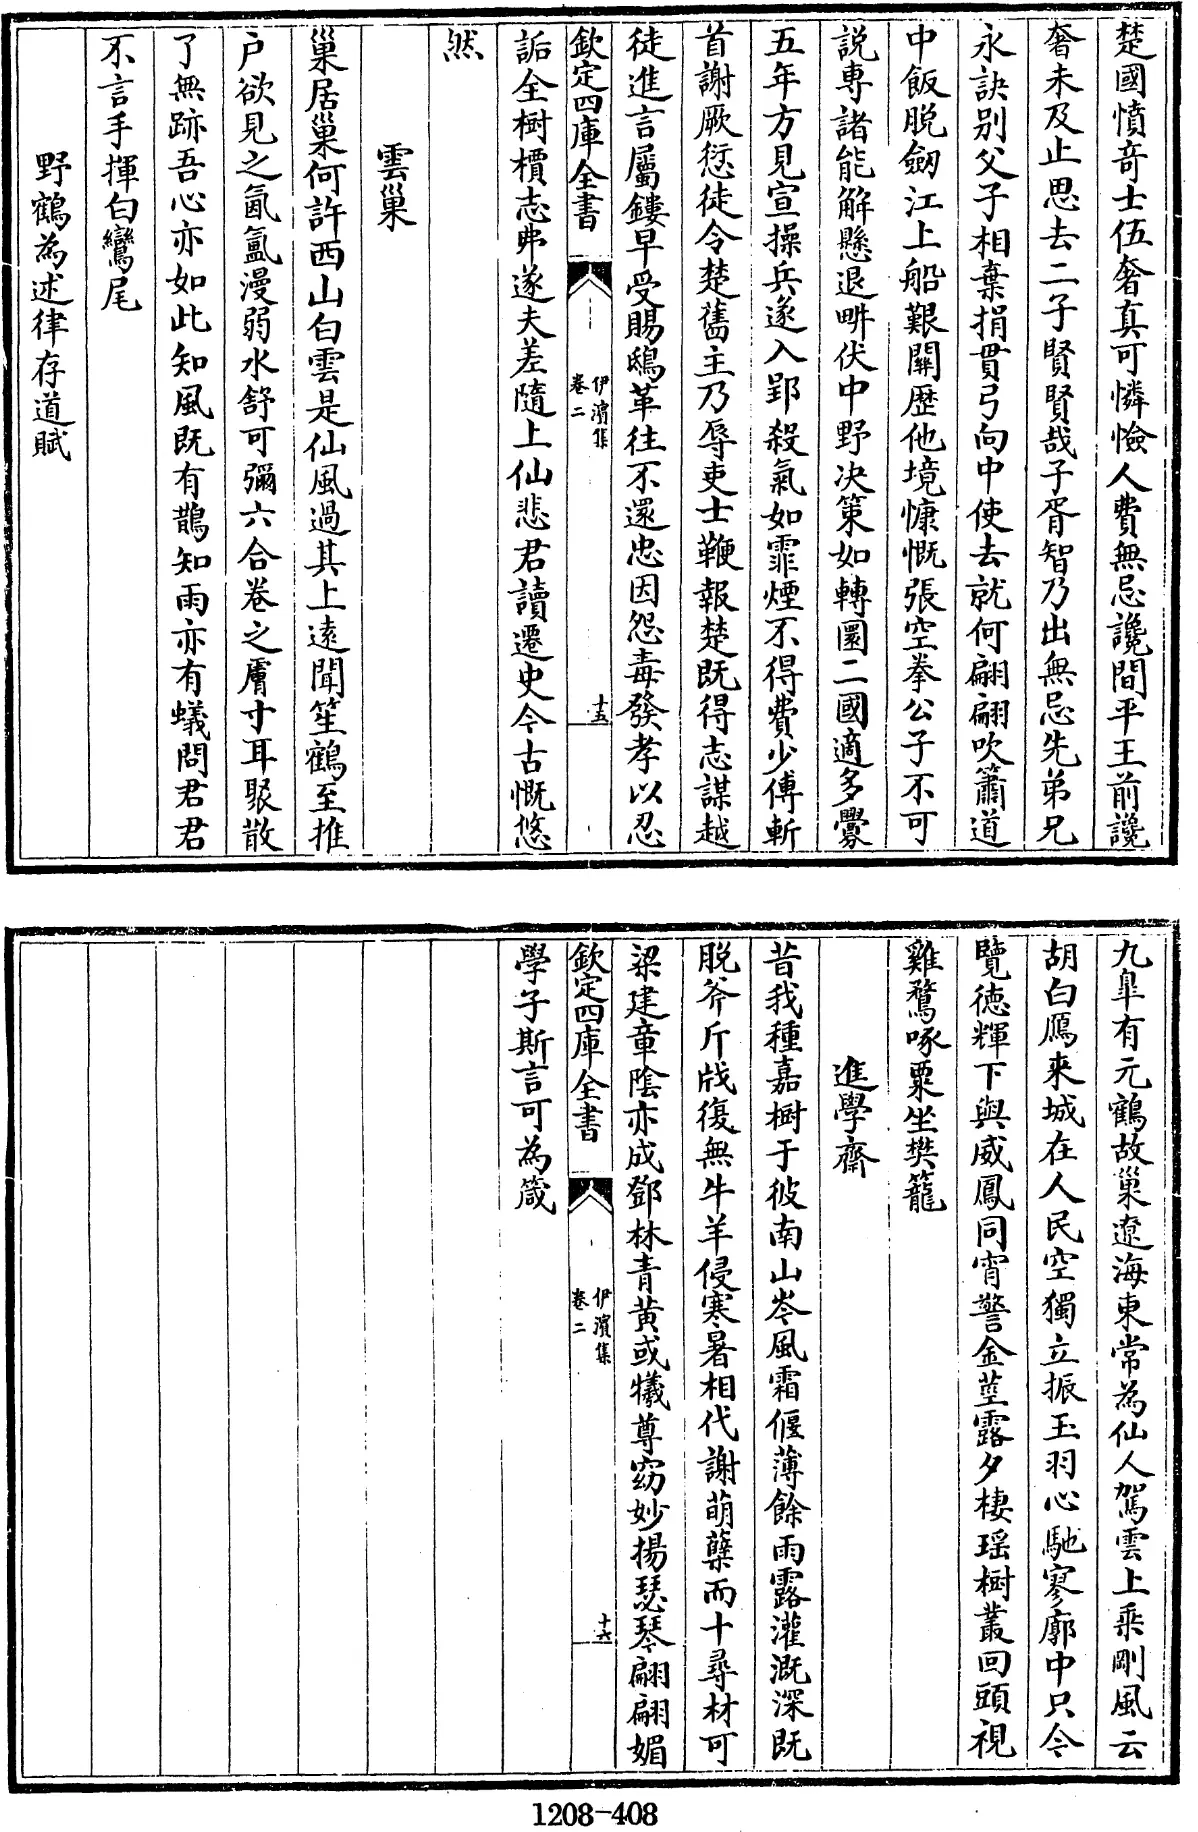 楚國憤竒士伍奢真可憐憸人費無忌讒間平王前讒
奢未及止思去二子賢賢哉子胥智乃出無忌先弟兄
永訣别父子相棄捐貫弓向中使去就何翩翩吹簫道
中飯脱劒江上船艱關歴他境慷慨張空拳公子不可
説專諸能解懸退畊伏中野决策如轉圜二國適多釁
五年方見宣操兵遂入郢殺氣如霏煙不得費少傅斬
首謝厥愆徒令楚舊主乃辱吏士鞭報楚既得志謀越
徒進言屬鏤早受賜鴟革往不還忠因怨毒發孝以忍
欽定四庫全書
伊濱集
卷二
十五
詬全樹檟志弗遂夫差隨上仙悲君讀遷史今古慨悠
然
雲巢
巢居巢何許西山白雲是仙風過其上逺聞笙鶴至推
户欲見之氤氳漫弱水舒可彌六合卷之膚寸耳聚散
了無跡吾心亦如此知風既有鵲知雨亦有蟻問君君
不言手揮白鸞尾
野鶴為述律存道賦
九臯有元鶴故巢遼海東常為仙人駕雲上乘剛風云
胡白鴈來城在人民空獨立振玉羽心馳寥廓中只今
覽徳輝下與威鳳同宵警金莖露夕棲瑶樹叢回頭視
雞鶩啄粟坐樊籠
進學齋
昔我種嘉樹于彼南山岑風霜偃薄餘雨露灌溉深既
脱斧斤戕復無牛羊侵寒暑相代謝萌蘖而十尋材可
梁建章陰亦成鄧林青黄或犧尊窈妙揚瑟琴翩翩媚
欽定四庫全書
伊濱集
卷二
十六
學子斯言可為箴
1208-408